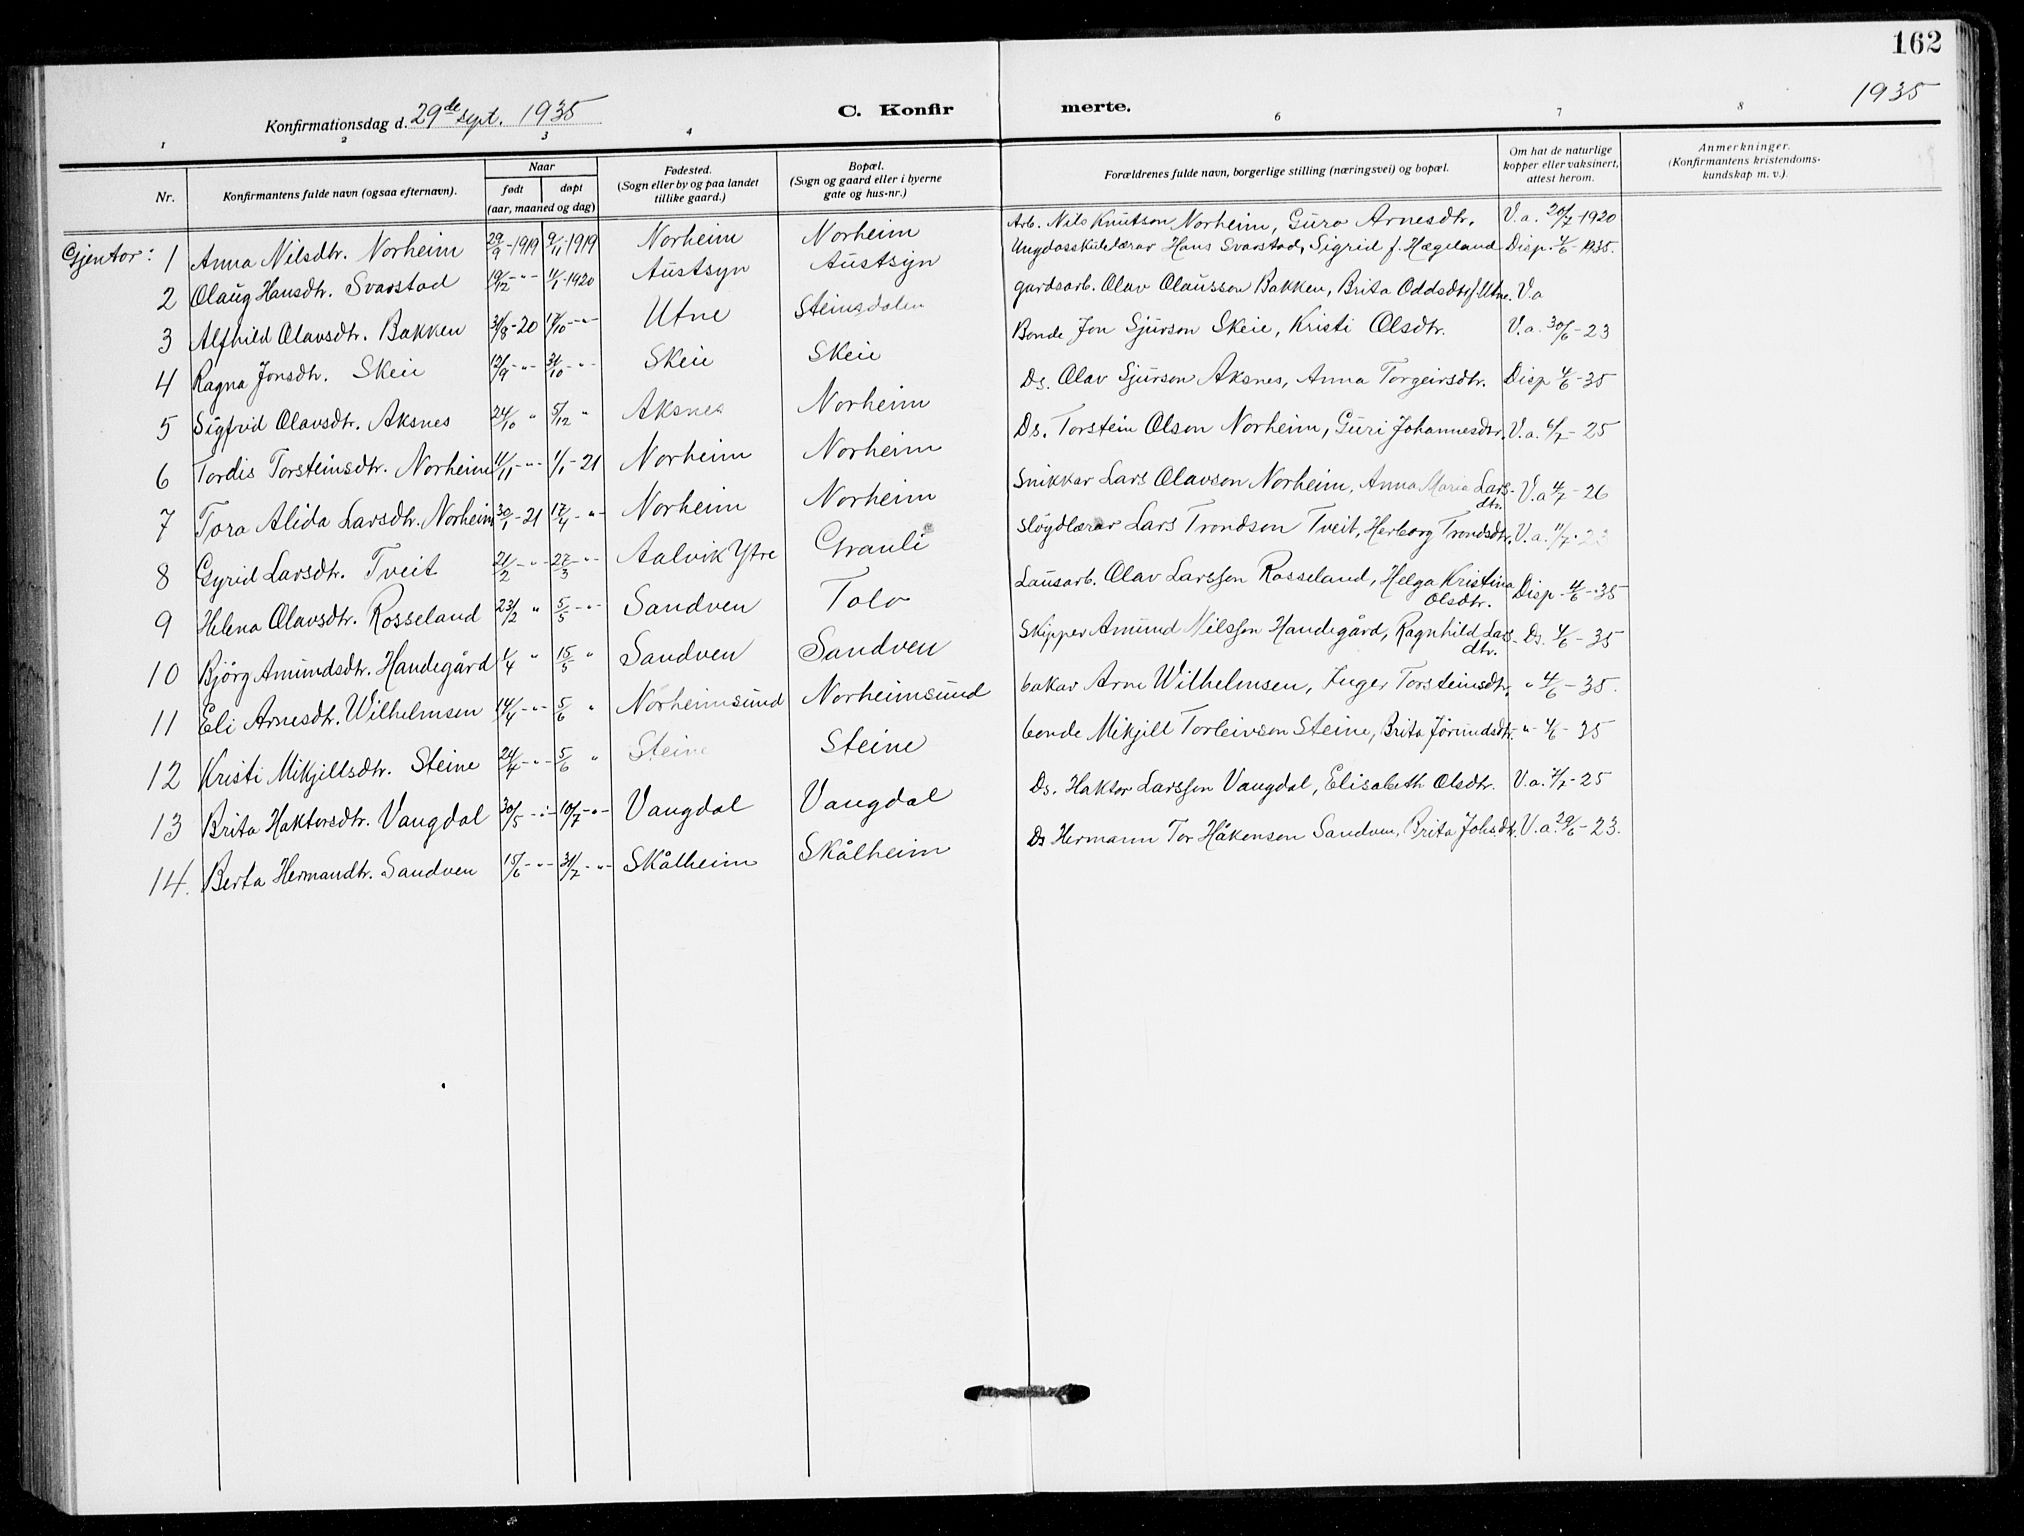 162
1935
Konfirmationsdag d. 29de sept. 1935
C. Konfirmerte.
1 2 3 4 6 7 8
Nr. | Konfirmantens fulde navn (ogsaa efternavn). | Naar født døpt (aar, maaned og dag) | Fødested. (Sogn eller by og paa landet tillike gaard.) | Bopæl. (Sogn og gaard eller i byerne gate og hus-nr.) | Forældrenes fulde navn, borgerlige stilling (næringsvei) og bopæl. | Om hat de naturlige kopper eller vaksinert, attest herom. | Anmerkninger. (Konfirmantens kristendoms-kundskap m. v.).
Gjentor:
1 Anna Nilsdtr. Norheim 29/9-1919 9/11-1919 Norheim Norheim Arb. Nils Knutson Norheim, Guro Arnesdtr. V.a. 20/7-1920
2 Olaug Hansdtr. Svarstad 19/12 -"- 11/1-1920 Austsyn Austsyn Ungdosskulelærar Hans Svarstad, Sigrid f. Hægeland Disp. 4/6-1935.
3 Alfhild Olavsdtr. Bakken 31/8-20 17/10 -"- Utne Steinsdalen gardsarb. Olav Olausson Bakken, Brita Oddsdtr f. Utne. V.a
4 Ragna Jonsdtr. Skeie 12/9 -"- 31/10 -"- Skeie Skeie Bonde Jon Sjurson Skeie, Kristi Olsdtr. V.a. 30/6-23
5 Sigfrid Olavsdtr. Aksnes 24/10 " 5/12 " Aksnes Norheim Ds. Olav Sjurson Aksnes, Anna Torgeirsdtr. Disp 4/6-35
6 Tordis Torsteinsdtr. Norheim 11/11 -"- 1/1-21 Norheim Norheim Ds. Torstein Olson Norheim, Guri Johannesdtr. V.a. 6/7-25
7 Tora Alida Larsdtr. Norheim 30/1-21 17/4 -"- Norheim Norheim Snikkar Lars Olavson Norheim, Anna Maria Larsdtr. V.a 4/7-26
8 Gyrid Larsdtr. Tveit 21/2 -"- 27/3 -"- Aalvik Ytre Grauli sløydlærar Lars Trondson Tveit, Herborg Trondsdtr. V.a. 11/7-23
9 Helena Olavsdtr. Rosseland 23/2 " 5/5 -"- Sandven Tolo Lausarb. Olav Larsson Rosseland, Helga Kristina Olsdtr. Disp 4/6-35
10 Bjørg Amundsdtr. Handegård 1/4 " 15/5 " Sandven Sandven Skipper Amund Nilsson Handegård, Ragnhild Larsdtr. Ds. 4/6-35
11 Eli Arnesdtr. Wilhelmsen 14/4 -"- 5/6 " Norheimsund Norheimsund bakar Arne Wilhelmsen, Inger Torsteinsdtr. " 4/6-35.
12 Kristi Mikjillsdtr. Steine 24/4 -"- 5/6 " Steine Steine bonde Mikjill Torleivson Steine, Brita Jørundsdtr. -"- 4/6-35
13 Brita Haktorsdtr. Vangdal 30/5 -"- 10/7 -"- Vangdal Vangdal Ds. Haktor Larsson Vangdal, Elisabeth Olsdtr. V.a. 7/7-25
14. Berta Hermandtr. Sandven 15/6 -"- 31/7 -"- Skålheim Skålheim Ds Hermann Tor Håkonson Sandven, Brita Johsdtr. V.a. 29/6-23.